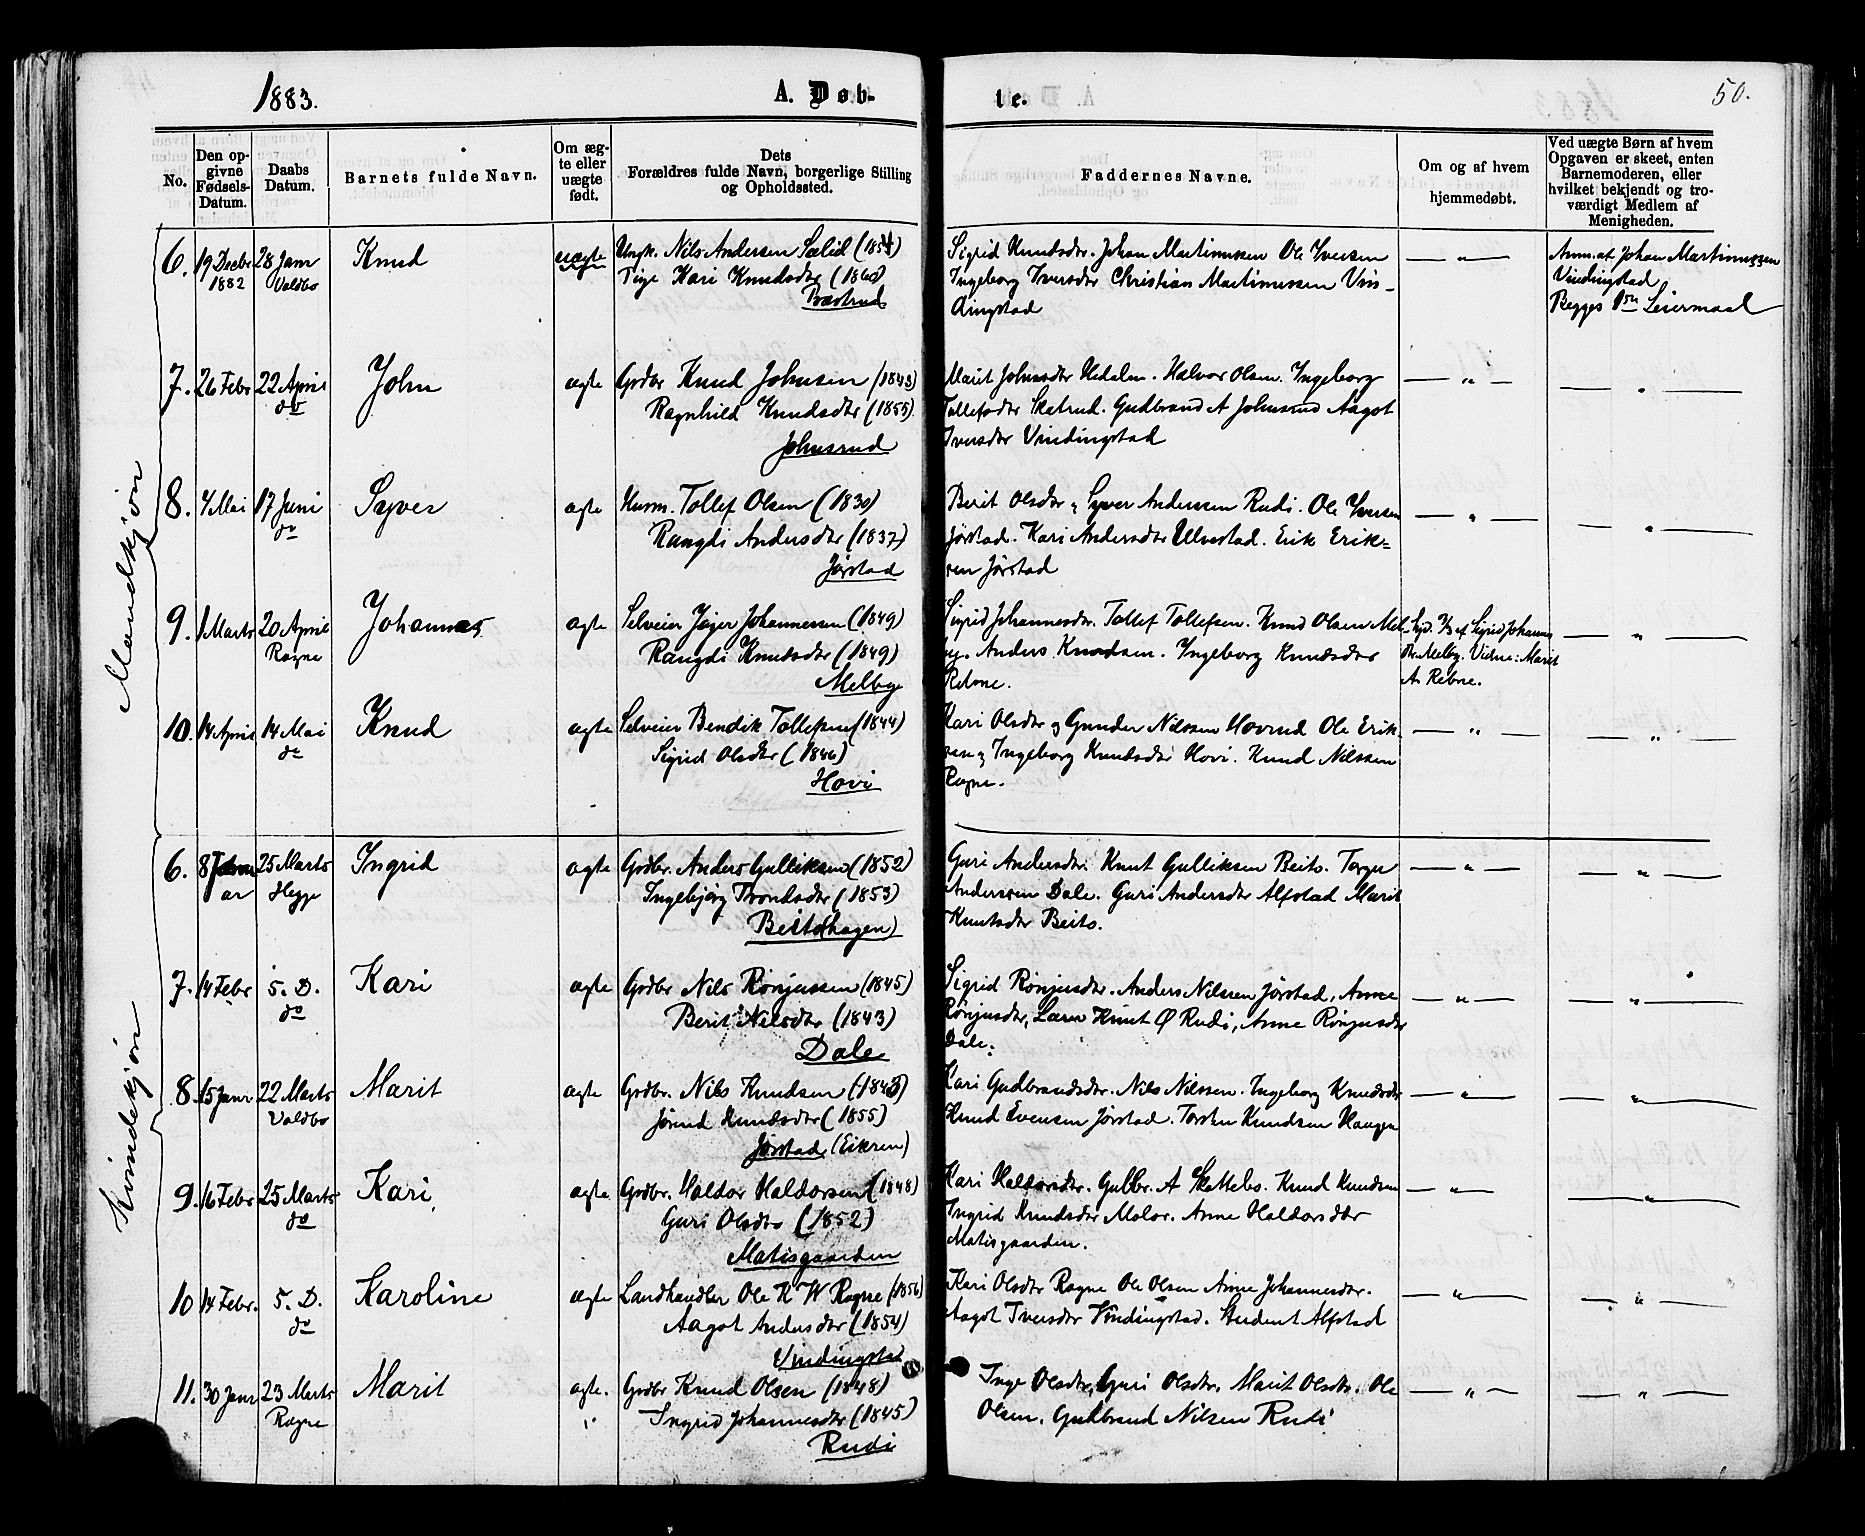 1883.
A. Døb-
te.
50.
No.
Den op-
givne
Fødsels-
Datum.
Daabs
Datum.
Barnets fulde Navn.
Om æg-
te eller
uægte
født.
Dets
Forældres fulde Navn, borgerlige Stilling
og Opholdssted.
Faddernes Navne.
Om og af hvem
hjemmedøbt.
Ved uægte Børn af hvem
Opgaven er skeet, enten
Barnemoderen, eller
hvilket bekjendt og tro-
værdigt Medlem af
Menigheden.
Mandkjøn
6. 19 Decbr 28 Janr Knud uægte Ungk. Nils Andersen Sælid (1854) Sigrid Knudsdtr. Johan Martinussen Ole Iversen — " — Anm. af Johan Martinussen
1882 Valdbo Pige Kari Knudsdtr (1860) Ingeborg Iversdtr Christian Martinussen Vin- Vindingstad
dingstad Begges 1ste Leiermaal
7. 26 Febr 22 April John ægte Grdbr Knud Johnsen (1843) Marit Johnsdtr Hedalen. Halvor Olsen. Ingeborg — " — — " —
do Ragnhild Knudsdtr (1855) Tollefsdtr Skatrud. Gudbrand A Johnsrud Aagot
Johnsrud Iversdtr Vindingstad
8. 4 Mai 17 Juni Syver ægte Husm. Tollef Olsen (1830) Berit Olsdtr & Syver Anderssen Rudi. Ole Iversen — " — — " —
do Rangdi Andersdtr (1837) Jørstad. Kari Andersdtr Ulvestad. Erik Erik-
Jørstad sen Jørstad
9. 1 Marts 20 April Johannes ægte Selveier Jøger Johannessen (1849) Sigrid Johannesdtr. Tollef Tollefsen. Knud Olsen Mel- af Sigrid Johannes — " —
Rogne Rangdi Knudsdtr (1849) by. Anders Knudsen. Ingeborg Knudsdtr dtr Melby. Vidne: Marit
Melby Rebne. A. Rebne.
10. 14 April 14 Mai Knud ægte Selveier Bendik Tollefsen (1844) Kari Olsdtr & Gunder Nilssen Hovrud Ole Erik- — " — — " —
do Sigrid Olsdtr (1846) sen & Ingeborg Knudsdtr Hovi. Knud Nilssen
Hovi Rogne.
Kvindekjøn
6. 8 Janu 25 Marts Ingrid ægte Grdbr. Anders Gulliksen (1852) Guri Andersdtr. Knut Gulliksen Beito. Torger — " — — " —
ar Hegge Ingebjørg Trondsdtr (1853) Anderssen Dale. Guri Andersdtr Alfstad Marit
Beito (hagen) Knutsdtr Beito.
7. 14 Febr 5. D. Kari ægte Grdbr Nils Rønjussen (1845) Sigrid Rønjusdtr. Anders Nilssen Jørstad, Anne — " — — " —
do Berit Nilsdtr (1843) Rønjusdtr, Lærer Knut Ø Rudi, Anne Rønjusdtr
Dale Dale.
8. 15 Janr 22 Marts Marit ægte Grdbr. Nils Knudsen (1843) Kari Gudbrandsdtr. Nils Nilssen. Ingeborg Knudsdtr — " — — " —
Valdbo Jørand Knudsdtr (1855) Knud Evensen Jørstad. Torsten Knudsen Haugen
Jørstad (Eikren)
9. 16 Febr 25 Marts Kari ægte Grdbr. Haldor Haldorsen (1848) Kari Haldorsdtr. Gulbr. A Skattebo. Knud Knudsen — " — — " —
do Guri Olsdtr (1852) Ingrid Knudsdtr Moløs. Anne Haldorsdtr
Matisgaarden Matisgaarden.
10 14 Febr. 5. D. Karoline ægte Landhandler Ole K W Rogne (1856) Kari Olsdtr Rogne Ole Olsen Anne Johannesdtr. — " — — " —
do Aagot Andersdtr (1854) Aagot Iversdtr Vindingstad. Student Alfstad
Vindingstad
11. 30 Janr 23 Marts Marit ægte. Grdbr Knud Olsen (1848) Inge Olsdtr, Guri Olsdtr, Marit Olsdtr. Ole — " — — " —
Rogne Ingrid Johannesdtr (1845) Olsen, Gudbrand Nilsen Rudi
Rudi